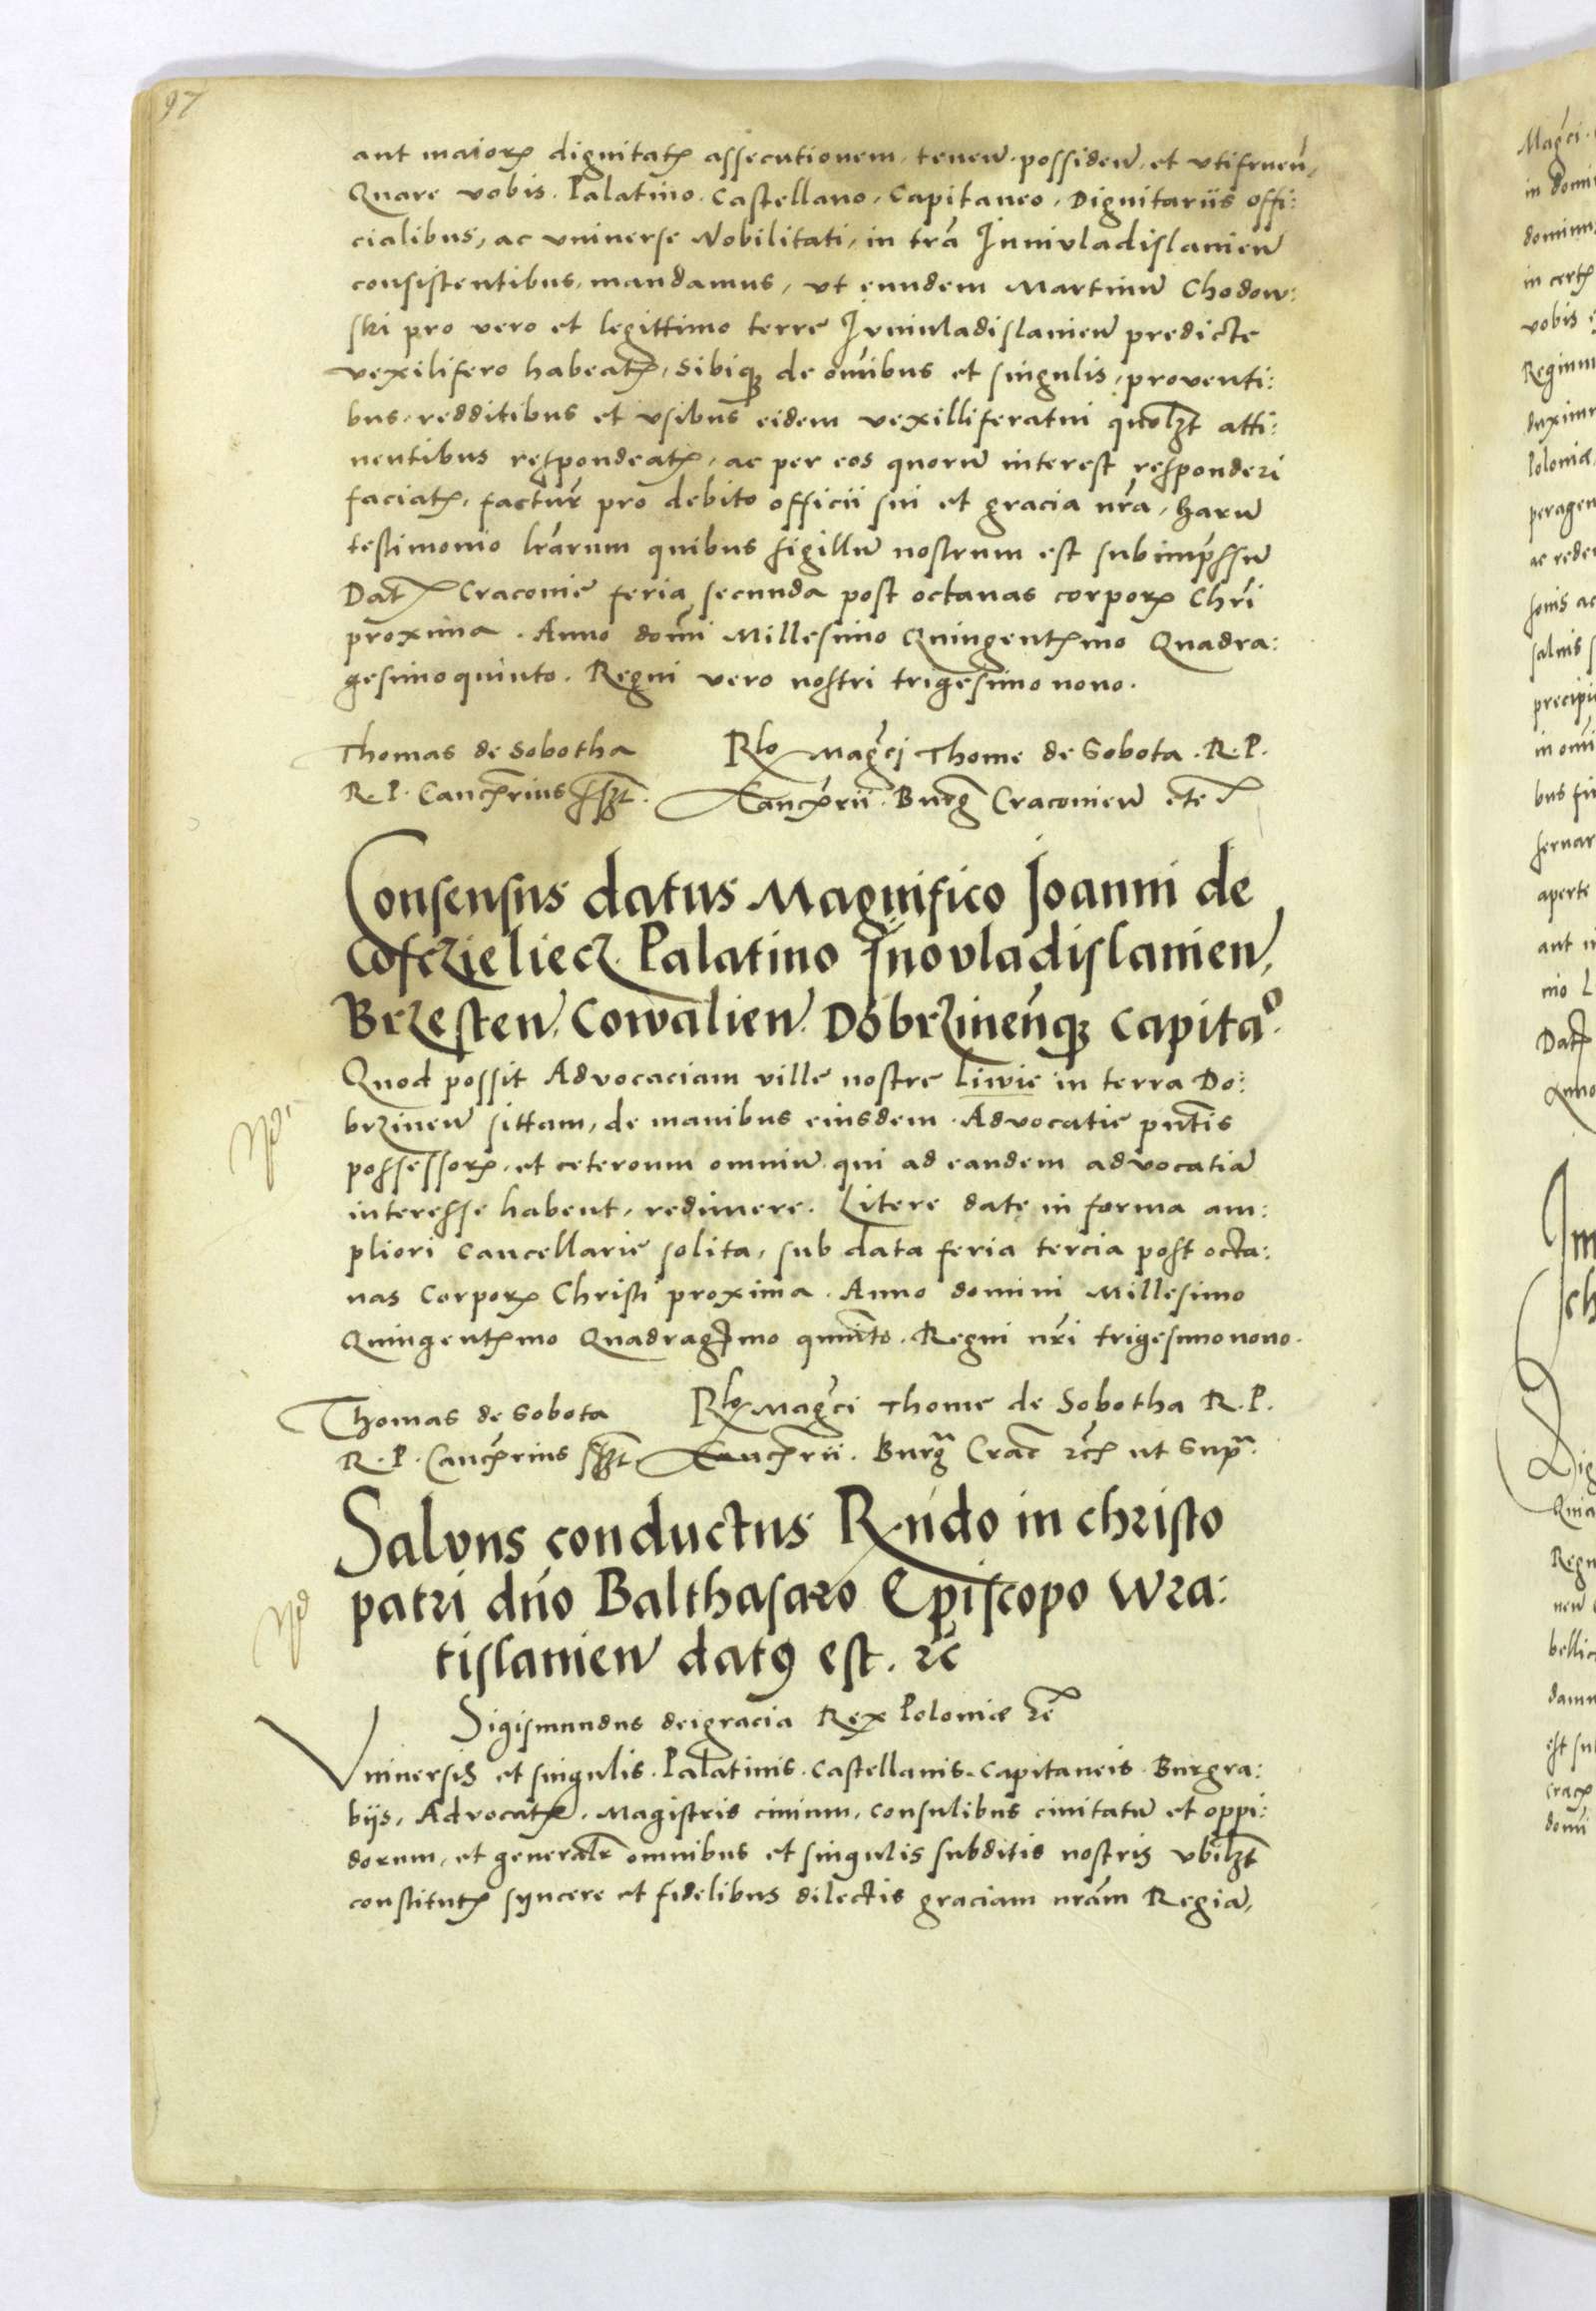 97
aut maiorꝭ dignitatꝭ assecutionem, teneñ. possideñ. et vtifrueñ,
Quare vobis. Palatino. Castellano, Capitaneo, Dignitariis offi:
cialibus, ac vniuerse Nobilitati, in trã Juniuladislauieñ
consistentibus, mandamus, vt eundem Martinũ Chodow:
ski pro vero et legittimo terre Juniuladislauieñ predicte
vexilifero habeatꝭ, sibiqꝫ de om̃ibus et singulis, proventi:
bus, redditibus et vsibus eidem vexilliferatui quolꝫt atti:
nentibus respondeatꝭ, ac per eos quorũ interest responderi
faciatꝭ, factur̃ pro debito officii sui et gracia nr̃a, harũ
testimonio lr̃arum quibus sigillũ nostrum est subimp̃ssũ
Datꝭ Cracovie feria secunda post octauas corporꝭ Chr̃i
proxima. Anno dom̃i Millesimo Quingentꝭmo Quadra:
gesimoquinto. Regni vero nostri trigesimo nono.
Thomas de Sobotha
R. P. Cancꝭrius sszt.
Rlo Mag̃ci Thome de Sobota. R. P.
Cancꝭrii. Burg̃ Cracovieñ etc̃
Consensus datus Magnifico Joanni de
Cosczieliecz Palatino Jnovladislauien,
Brzesteñ. Cowalieñ. Dobrzineñqꝫ Capitaº.
Quod possit Advocaciam ville nostre Liwie in terra Do:
brzineñ sittam, de manibus eiusdem Advocatie pñtis
possessorꝭ, et ceteroum omniũ qui ad eandem advocatiã
interesse habent, redimere. Litere date in forma am:
pliori Cancellarie solita, sub data feria tercia post octa:
uas Corporꝭ Christi proxima. Anno domini Millesimo
Quingentꝭmo Quadragꝭmo quinto. Regni nr̃i trigesimonono.
Thomas de Sobota
R. P. Cancꝭrius sszt.
Rlo Mag̃ci Thome de Sobotha R. P.
Cancꝭrii. Burg̃ Crac̃ ꝛcꝭ ut Supᵃ.
Salvus conductus Rñdo in christo
patri dño Balthasaro Episcopo Wra:
tislauieñ datꝰ est. ꝛc̃
Sigismundus deigracia Rex Poloniæ ꝛc̃
Vniuersis et singulis. Palatinis. Castellanis. Capitaneis. Burgra:
biis, Advocatꝭ. Magistris civium, consulibus ciuitatũ et oppi:
dorum, et generalr̃ omnibus et singulis subditis nostris vbilꝫt
constitutꝭ syncere et fidelibus dilectis graciam nr̃am Regiã,